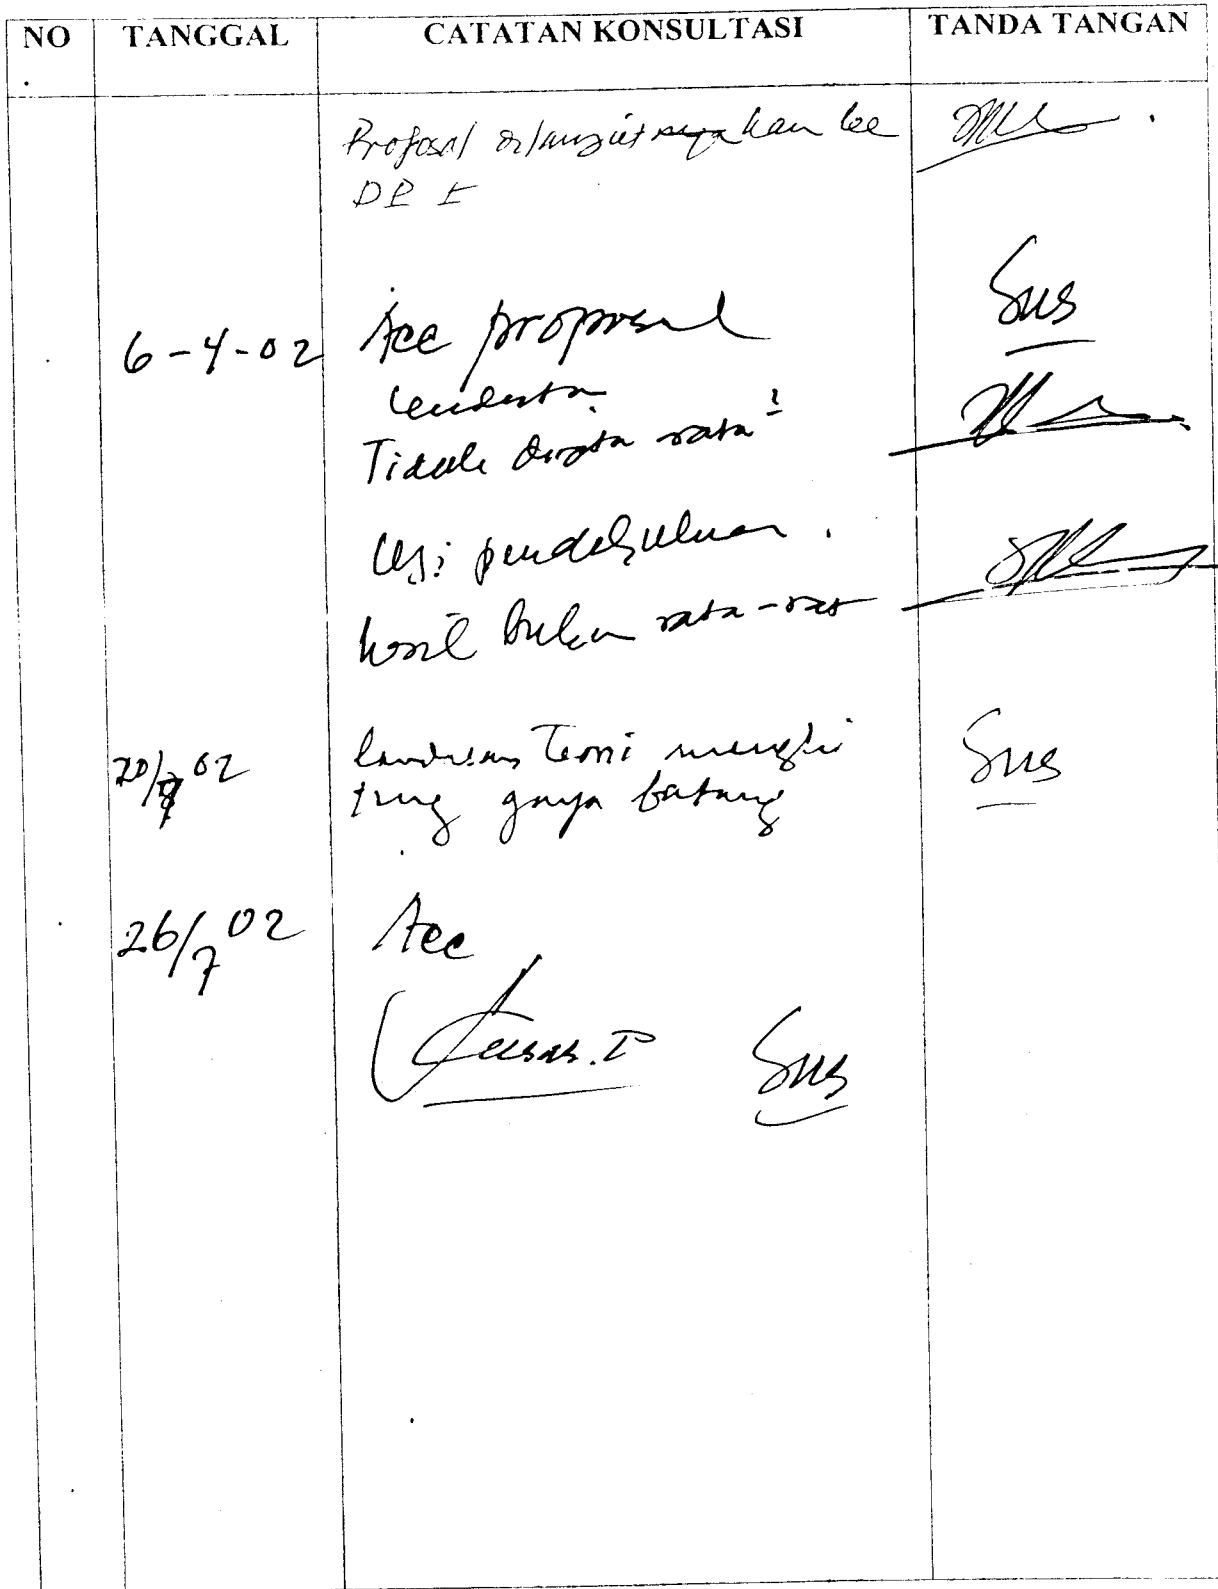 NO TANGGAL CATATAN KONSULTASI TANDA TANGAN
.
Proposal dilanjutkan ke
DP I
6-4-02 Acc proposal Sus
Tidak rata²
Uji pendahuluan.
hasil bukan rata-rat
20/ 02 landasan Teori menghi Sus
tung gaya batang
26/7 02 Acc
Sus